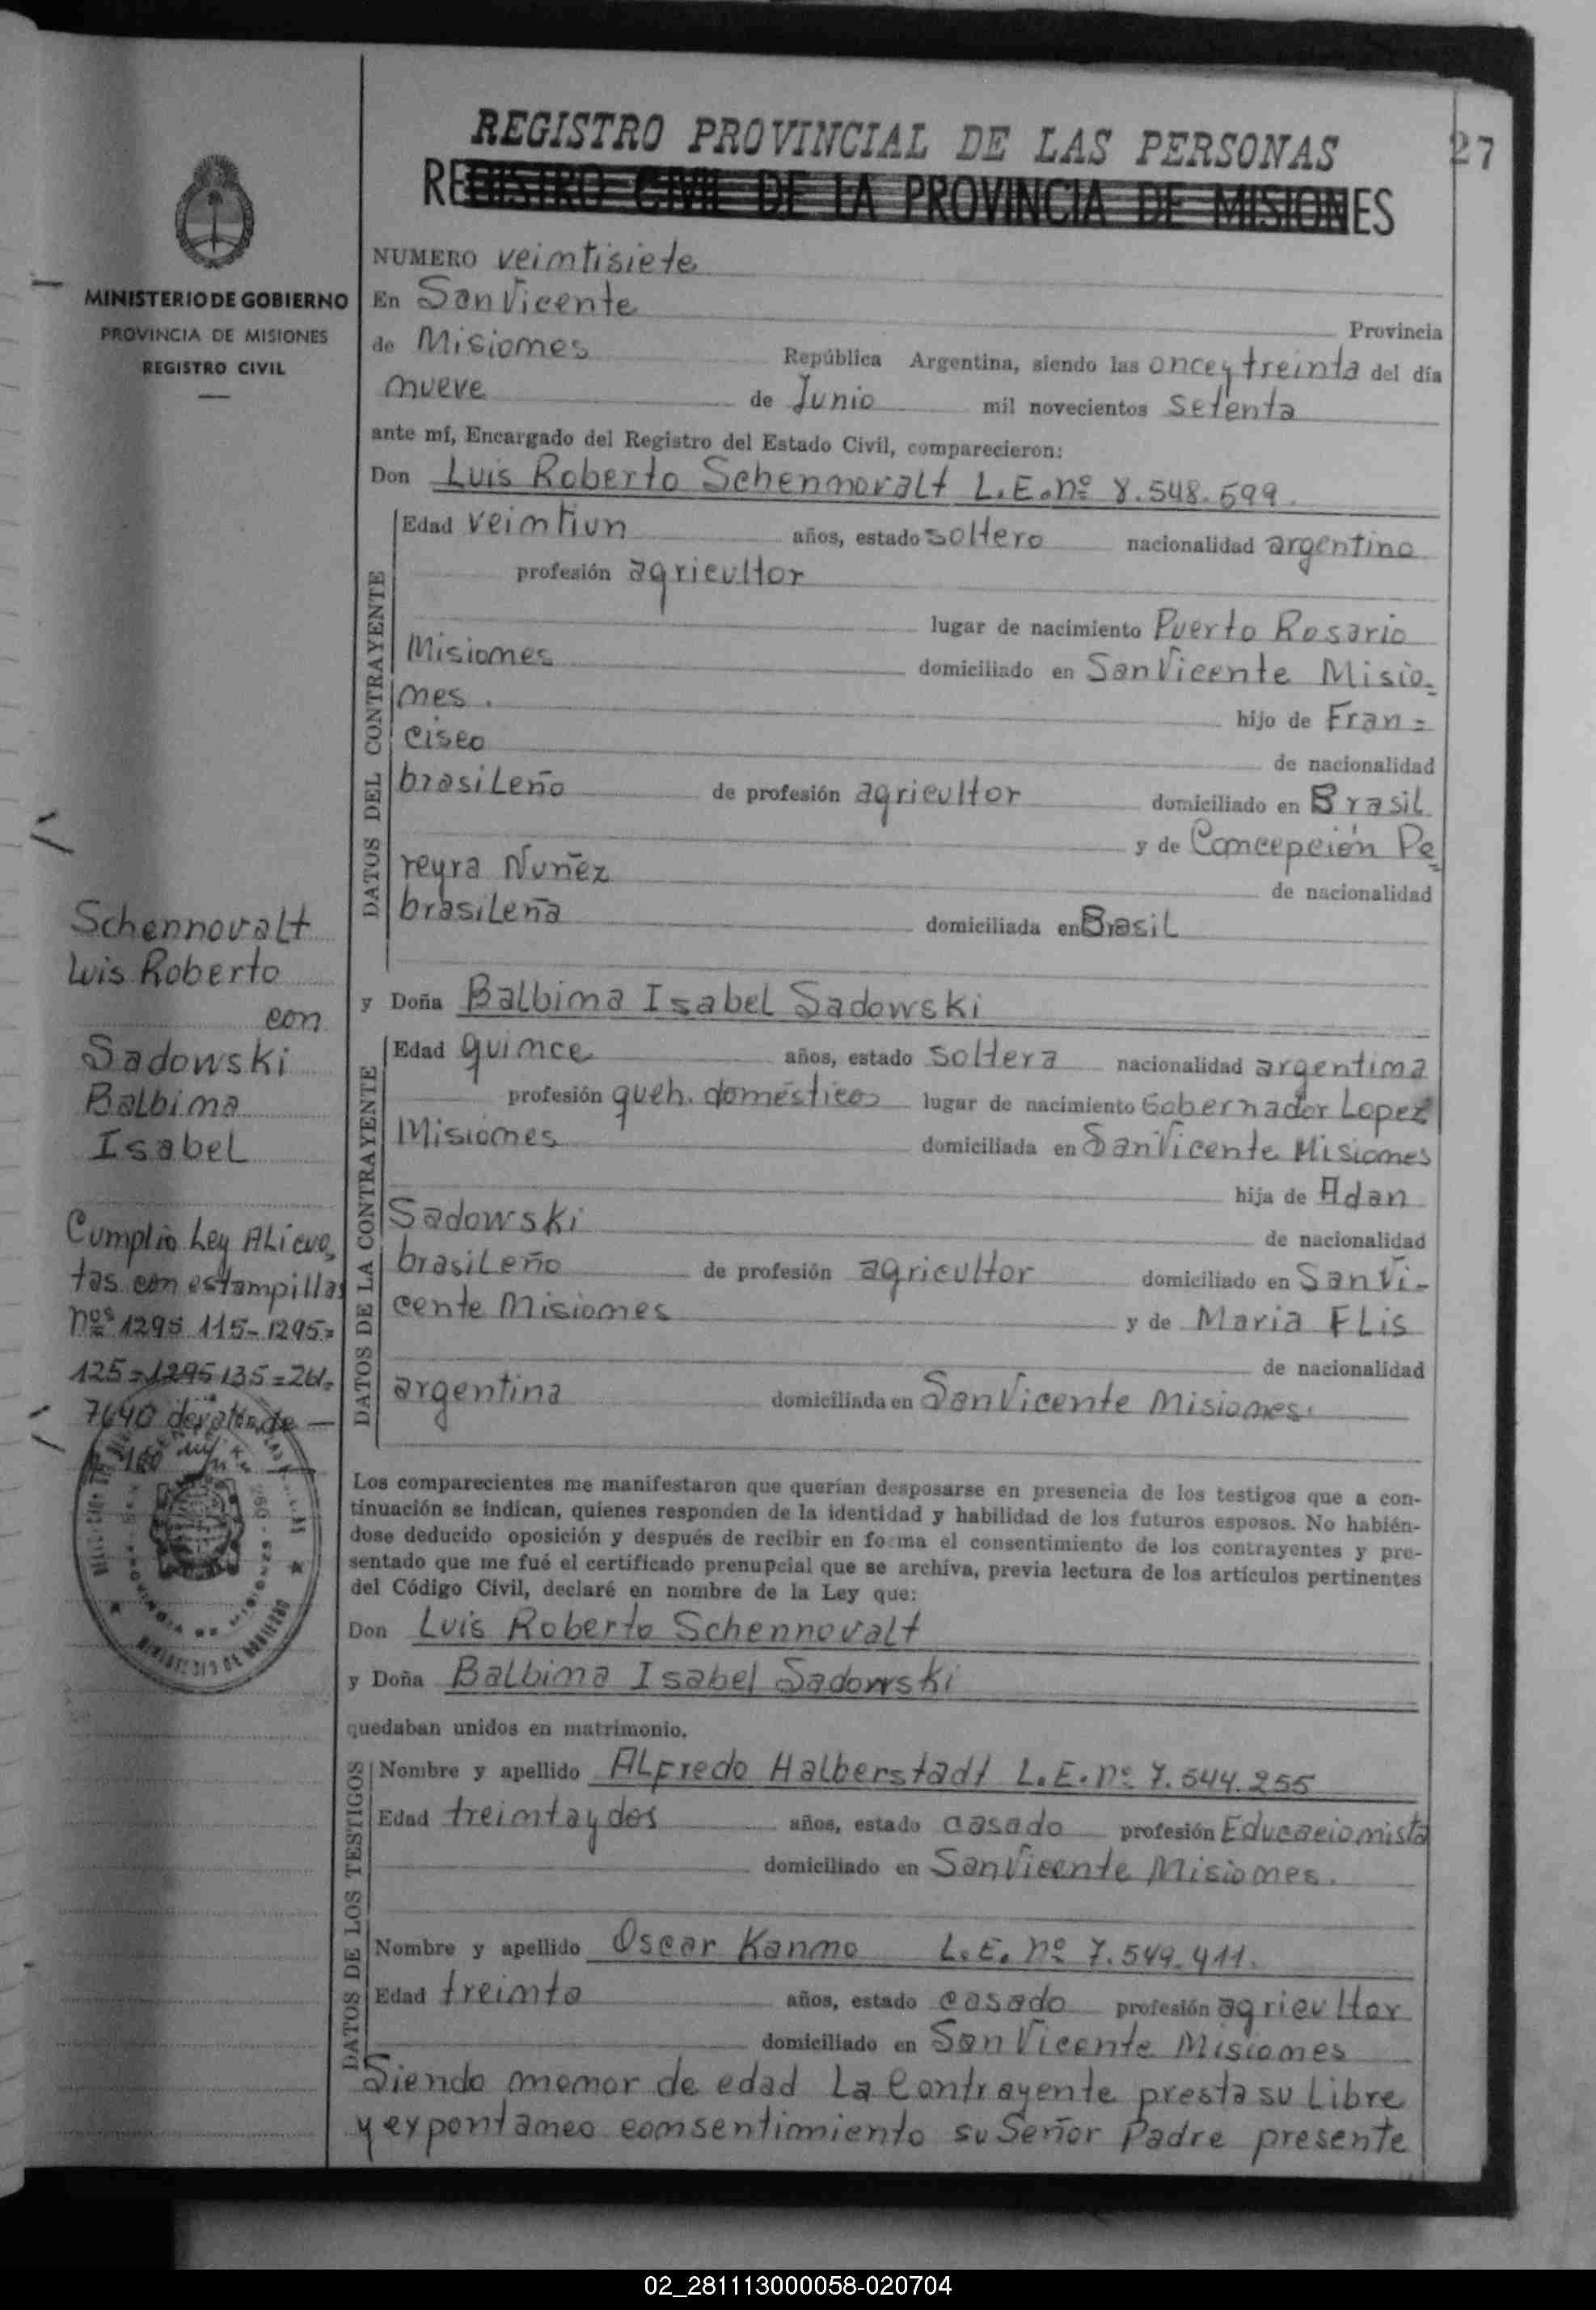 REGISTRO PROVINCIAL DE LAS PERSONAS
27
REGISTRO CIVIL DE LA PROVINCIA DE MISIONES
MINISTERIO DE GOBIERNO
PROVINCIA DE MISIONES
REGISTRO CIVIL
NUMERO veimtisiete
En San Vicente Provincia
de Misiomes República Argentina, siendo las once y treinta del día
mueve de Junio mil novecientos setenta
ante mí, Encargado del Registro del Estado Civil, comparecieron:
Don Luis Roberto Schennovalt L.E.nº 8.548.599.
DATOS DEL CONTRAYENTE
Edad veimtiun años, estado soltero nacionalidad argentino
profesión agricultor
lugar de nacimiento Puerto Rosario
Misiomes domiciliado en San Vicente Misio=
mes. hijo de Fran=
cisco de nacionalidad
brasileño de profesión agricultor domiciliado en Brasil
y de Comcepción Pe=
reyra Nuñez de nacionalidad
brasileña domiciliada en Brasil
y Doña Balbima Isabel Sadowski
DATOS DE LA CONTRAYENTE
Edad quimce años, estado soltera nacionalidad argentima
profesión queh. domésticos lugar de nacimiento Gobernador Lopez
Misiomes domiciliada en San Vicente Misiomes
hija de Adan
Sadowski de nacionalidad
brasileño de profesión agricultor domiciliado en San Vi-
cente Misiomes y de Maria Flis
de nacionalidad
argentina domiciliada en San Vicente Misiomes.
Los comparecientes me manifestaron que querían desposarse en presencia de los testigos que a con-
tinuación se indican, quienes responden de la identidad y habilidad de los futuros esposos. No habién-
dose deducido oposición y después de recibir en forma el consentimiento de los contrayentes y pre-
sentado que me fué el certificado prenupcial que se archiva, previa lectura de los artículos pertinentes
del Código Civil, declaré en nombre de la Ley que:
Don Luis Roberto Schennovalt
y Doña Balbima Isabel Sadowski
quedaban unidos en matrimonio.
DATOS DE LOS TESTIGOS
Nombre y apellido Alfredo Halberstadt L.E.nº 7.544.255
Edad treimtaydos años, estado casado profesión Educaciomista
domiciliado en San Vicente Misiomes.
Nombre y apellido Oscar Kanmo L.E. nº 7.549.411.
Edad treimta años, estado casado profesión agricultor
domiciliado en San Vicente Misiomes
Siendo memor de edad La Contrayente presta su Libre
y expontameo comsentimiento su Señor Padre presente
Schennovalt
Luis Roberto
con
Sadowski
Balbima
Isabel
Cumplio Ley ALicuo=
tas con estampillas
nos 1295 115-1295=
125=1295 135=261=
7640 de
100 m/n
MINISTERIO DE GOBIERNO
02_281113000058-020704